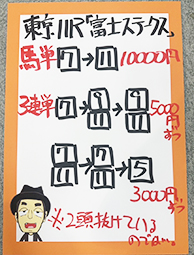 東京11R「富士ステークス」
馬単 7→11 10000円
3連単 7→9 11→9 11 5000円ずつ
7 11→7 11→5
3000円ずつ
※2頭抜けている
のでは…